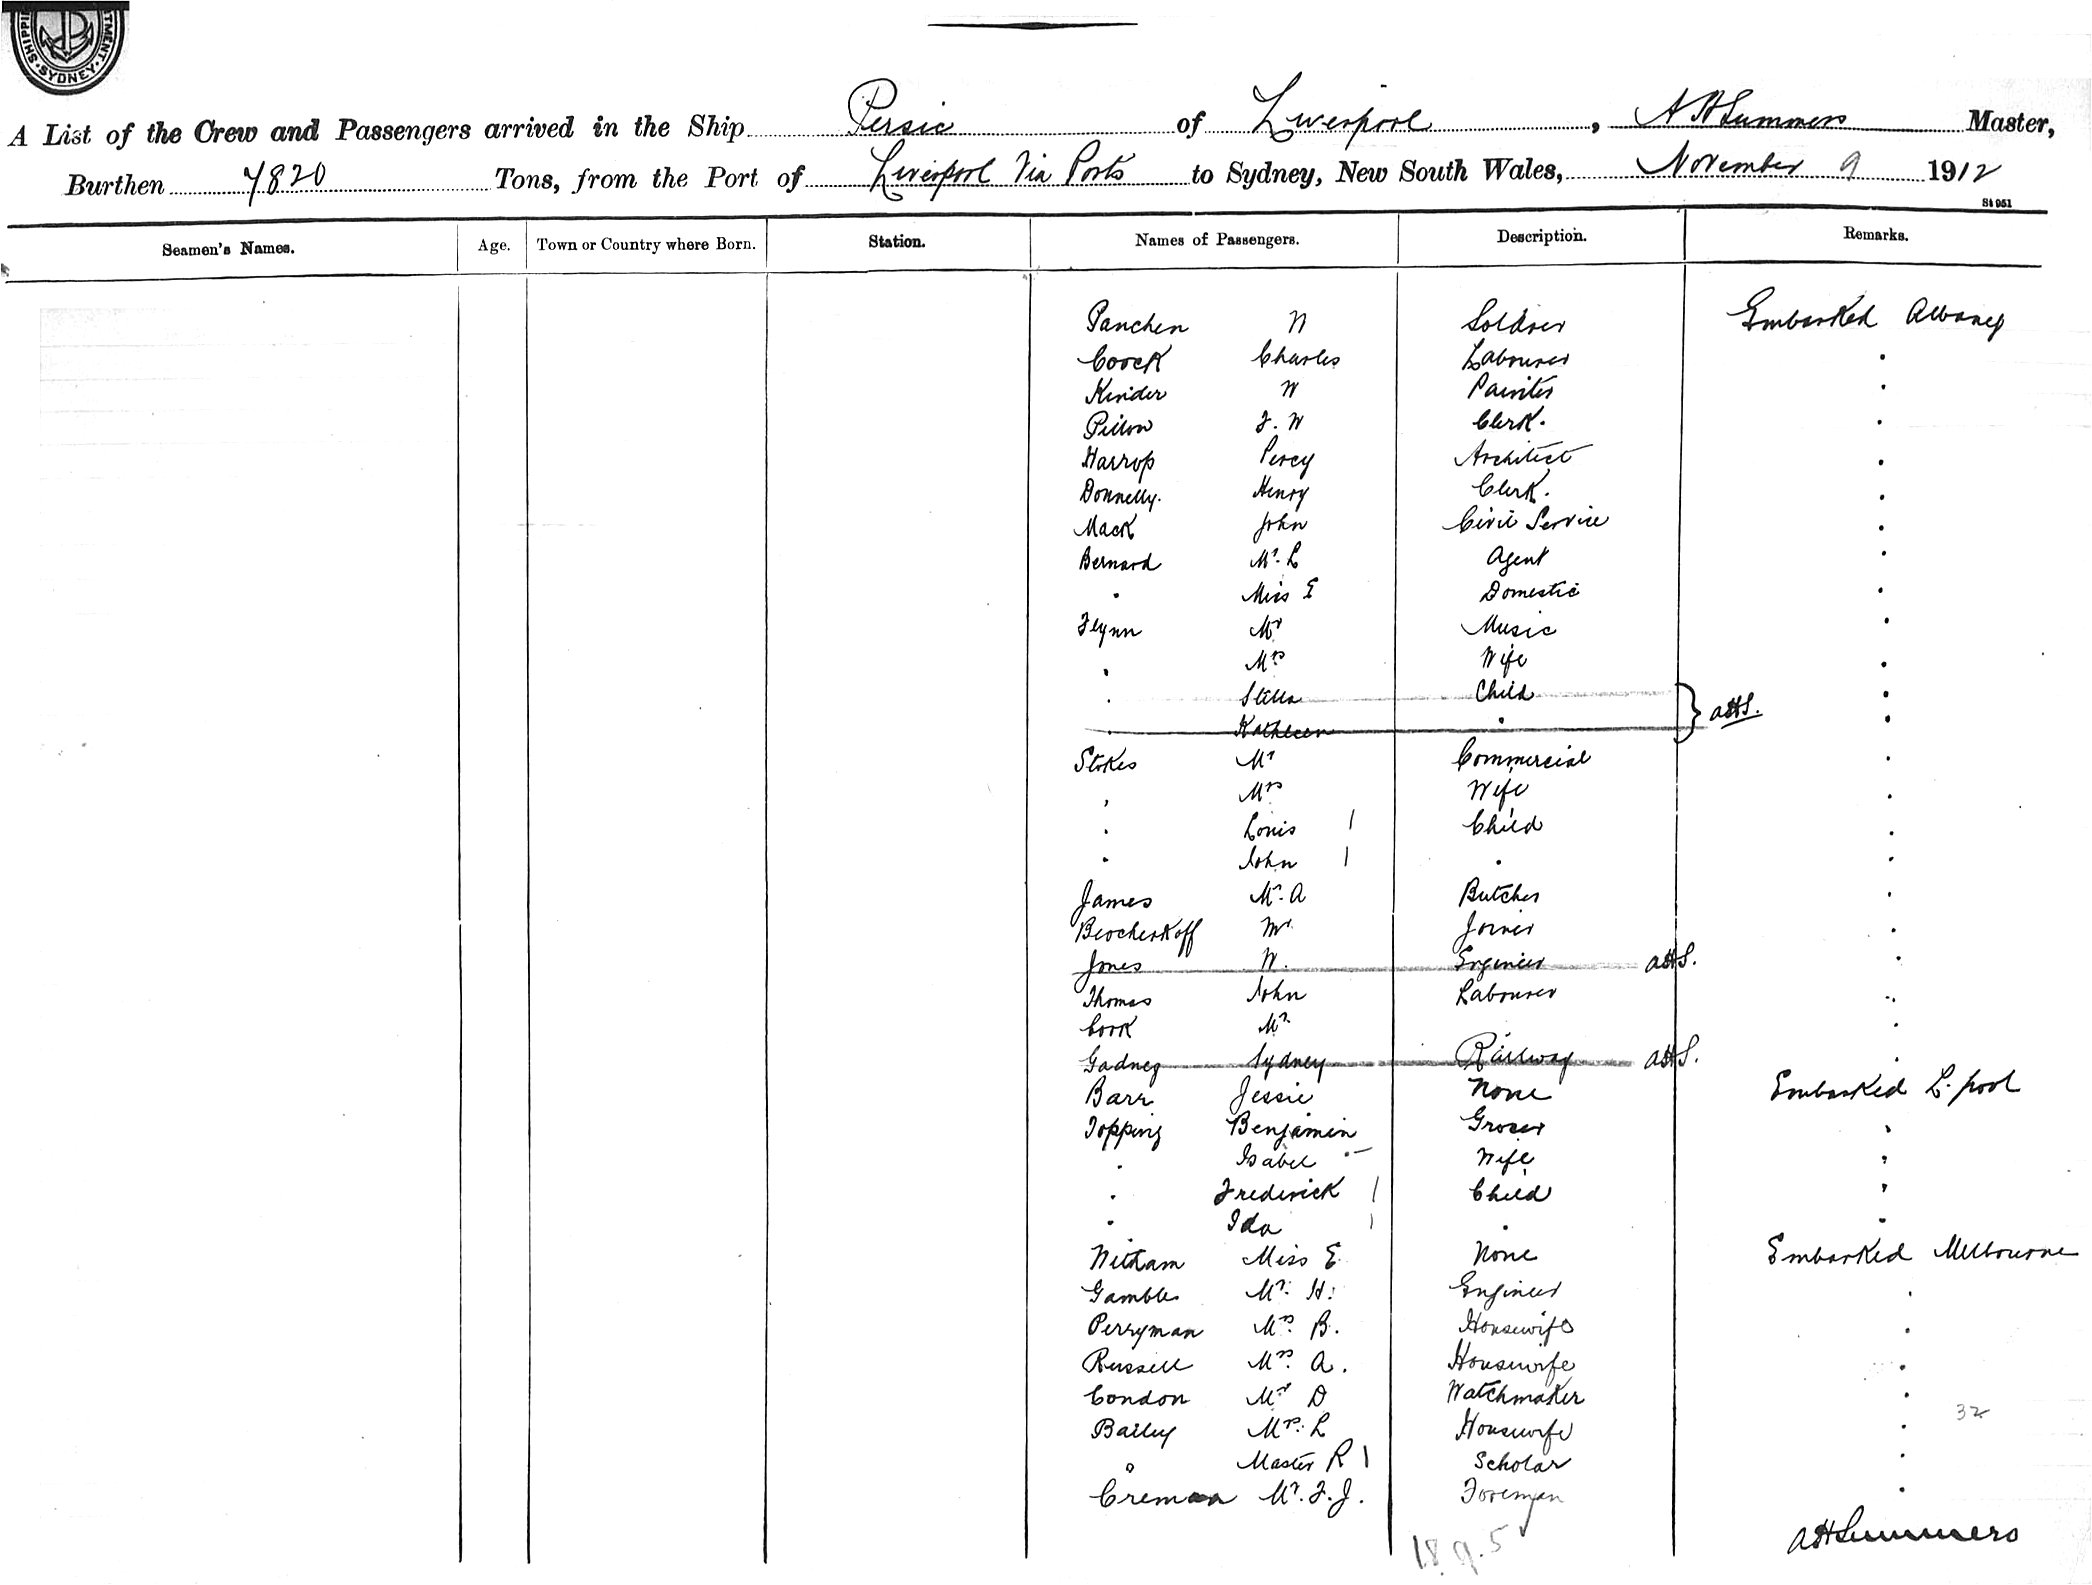 SHIPPING DEPARTMENT SYDNEY
A List of the Crew and Passengers arrived in the Ship Persic of Liverpool, A H Summers Master,
Burthen 7820 Tons, from the Port of Liverpool Via Ports to Sydney, New South Wales, November 9 1912
St 951
Seamen's Names. Age. Town or Country where Born. Station. Names of Passengers. Description. Remarks.
Panchen W Soldier Embarked Albany
Coock Charles Labourer "
Kinder W Painter "
Pillow F. W Clerk. "
Harrop Percy Architect "
Donnelly. Henry Clerk. "
Mack John Civil Service "
Bernard Mr. L Agent "
" Miss E Domestic "
Flynn Mr Music "
" Mrs Wife "
" Stella Child "
" Kathleen " AHS. "
Stokes Mr Commercial "
" Mrs Wife "
" Louis 1 Child "
" John 1 " "
James Mr. A Butcher "
Beocherkoff Mr. Joiner "
Jones W. Engineer AHS. "
Thomas John Labourer "
Cook Mr "
Gadney Sydney Railway AHS. "
Barr Jessie None Embarked L.pool
Topping Benjamin Grocer "
" Isabel Wife "
" Frederick 1 Child "
" Ida 1 " "
Witham Miss E None Embarked Melbourne
Gamble Mr. H. Engineer "
Perryman Mrs. B. Housewife "
Russell Mrs. A. Housewife "
Condon Mr D Watchmaker "
Bailey Mrs. L Housewife " 32
" Master R 1 Scholar "
Creman Mr. F. J. Foreman "
AHSummers